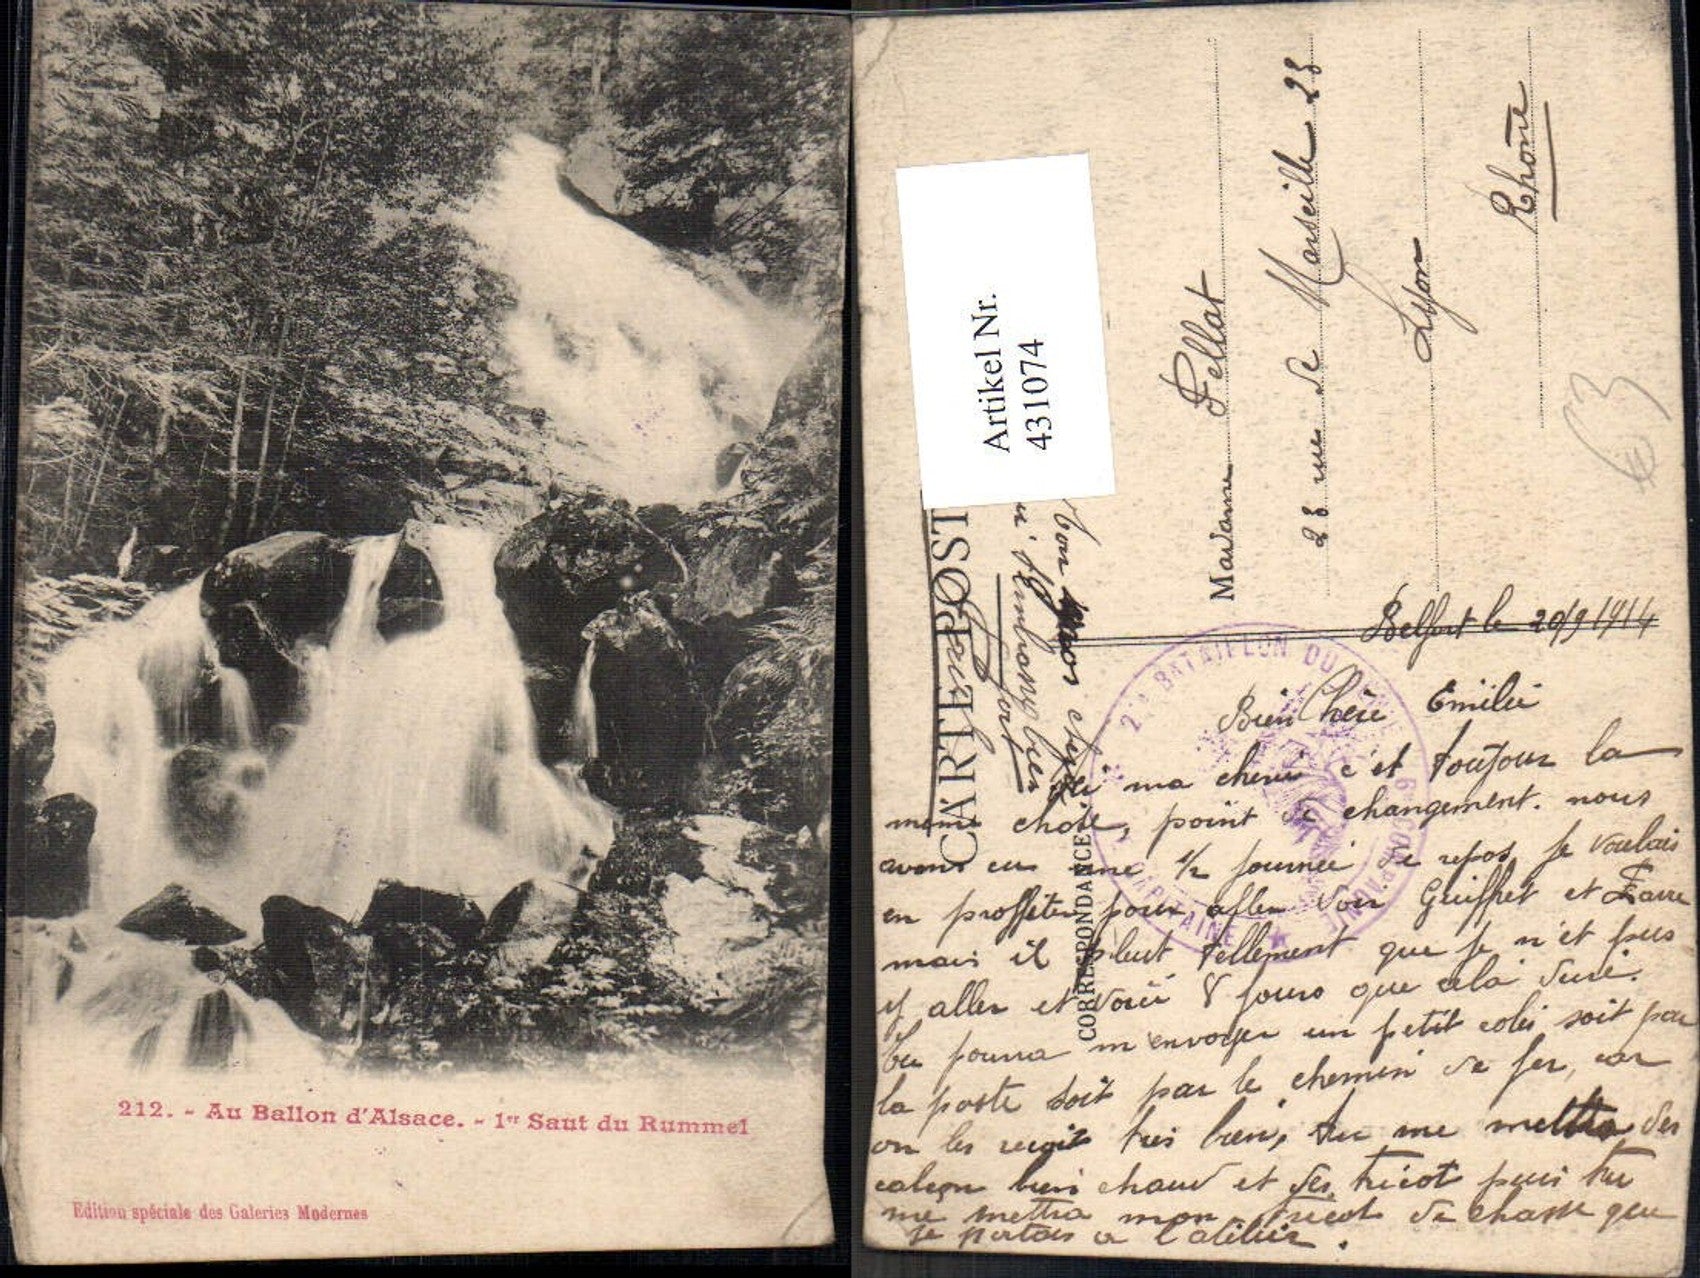 212. - Au Ballon d'Alsace. - 1er Saut du Rummel
Edition spéciale des Galeries Modernes
Artikel Nr.
431074
CARTE POST
CORRESPONDANCE
Madame Pellat
28 rue de Marseille 28
Lyon
Rhône
€3
Belfort le 20/9/1914
Bien Chère Emilie
ma cherie c'et toujour la
meme chose, point de changement. nous
avons eu une 1/2 journée de repos je voulais
en proffiter pour aller voir Guiffret et Favre
mais il pleut tellement que je n'et pus
y aller et voici 8 jours que cela dure.
tu pourra m'envoyer un petit colis soit par
la poste soit par le chemin de fer, car
on les reçoit tres bien, tu me mettra des
caleçon bien chaud et des tricot puis tu
me mettra mon tricot de chasse que
je portais a l'atelier.
2e BATAILLON DU
CAPITAINE